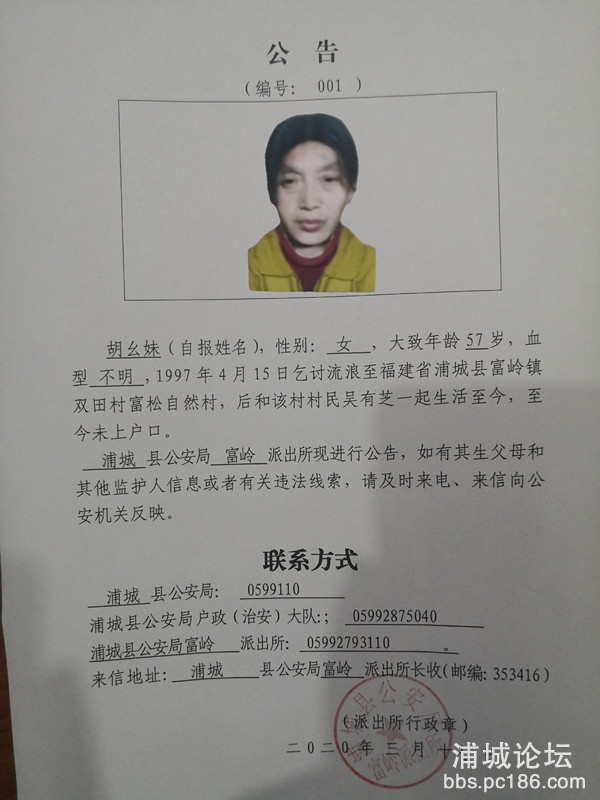 公 告
（编号： 001 ）
胡幺妹（自报姓名），性别： 女 ，大致年龄 57 岁，血
型 不明 ，1997 年 4 月 15 日乞讨流浪至福建省浦城县富岭镇
双田村富松自然村，后和该村村民吴有芝一起生活至今，至
今未上户口。
浦城 县公安局 富岭 派出所现进行公告，如有其生父母和
其他监护人信息或者有关违法线索，请及时来电、来信向公
安机关反映。
联系方式
浦城 县公安局： 0599110
浦城县公安局户政（治安）大队：； 05992875040
浦城县公安局富岭 派出所： 05992793110 。
来信地址： 浦城 县公安局富岭 派出所长收（邮编：353416）
（派出所行政章）
二〇二〇年 三 月 十
富岭派出所
浦城论坛
bbs.pc186.com